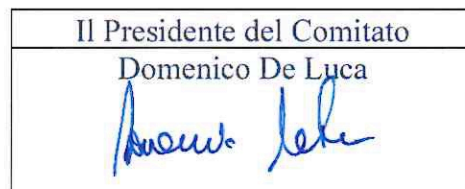 Il Presidente del Comitato
Domenico De Luca